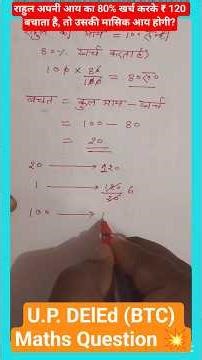 राहुल अपनी आय का 80% खर्च करके ₹ 120
बचाता है, तो उसकी मासिक आय होगी?
80% खर्च करता है
100 × 80/100 = 80रु०
बचत = कुल आय - खर्च
= 100 - 80
= 20
20 → 120
1 → 120/20 6
100 →
U.P. DElEd (BTC)
Maths Question 💥